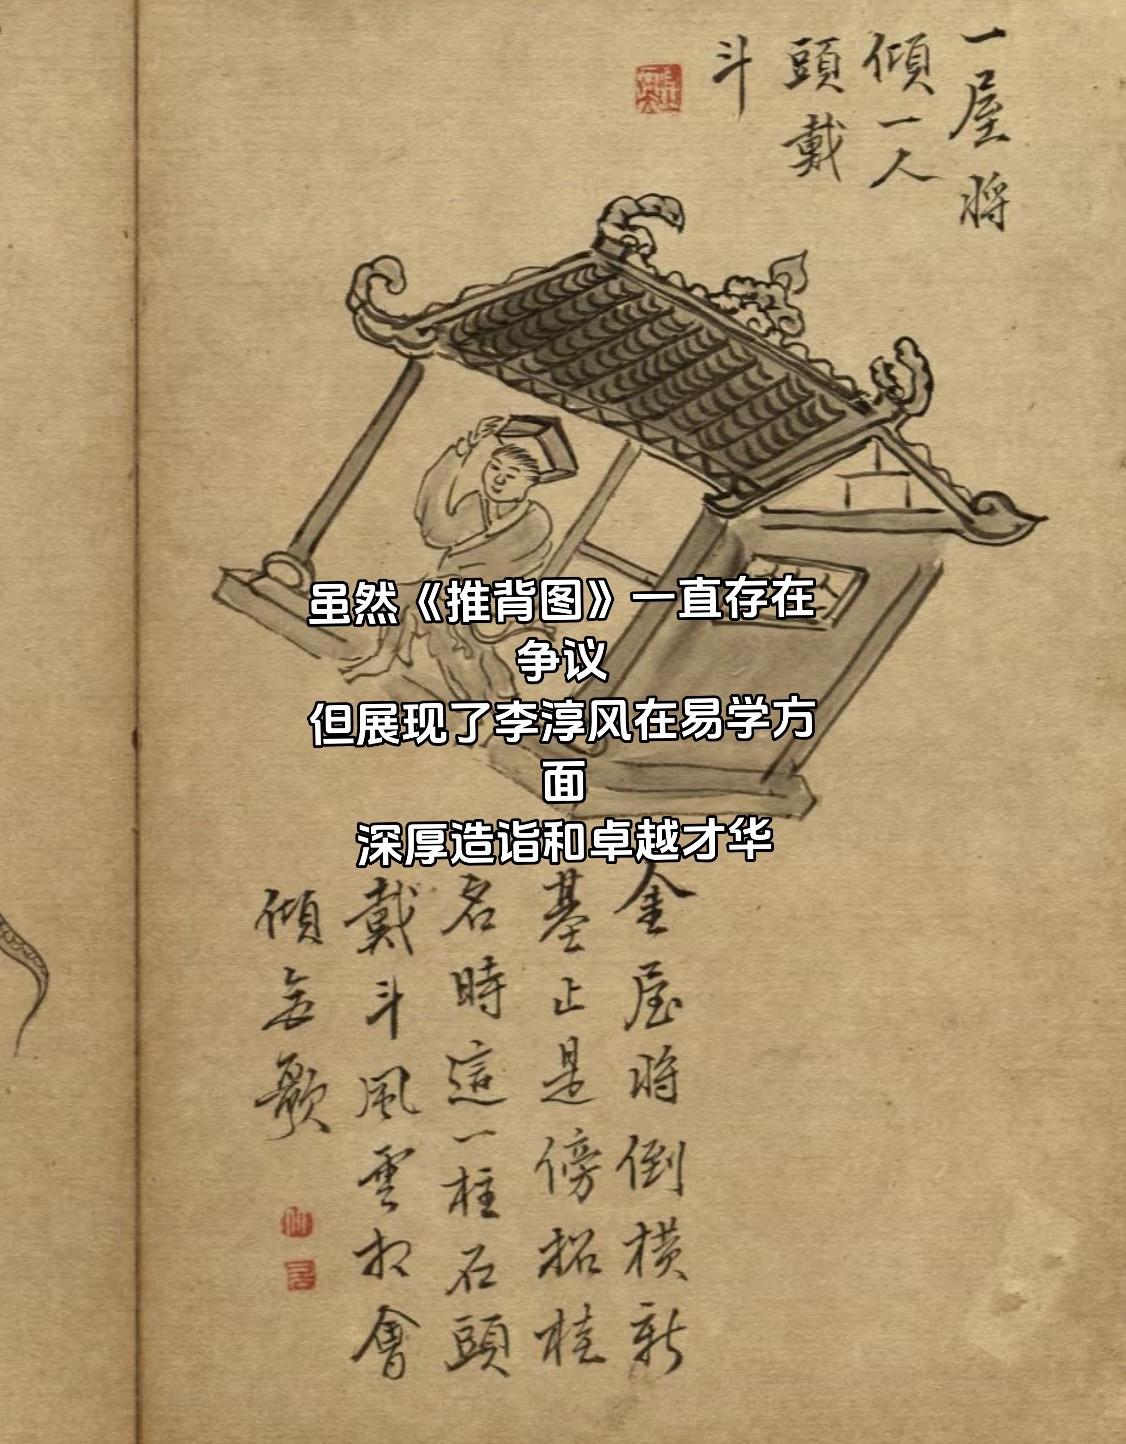 一屋將
傾一人
頭戴
斗
虽然《推背图》一直存在
争议
但展现了李淳风在易学方
面
深厚造诣和卓越才华
金屋將倒橫新
基止是傍招桂
名時這一柱石頭
戴斗風雲相會
傾 歌